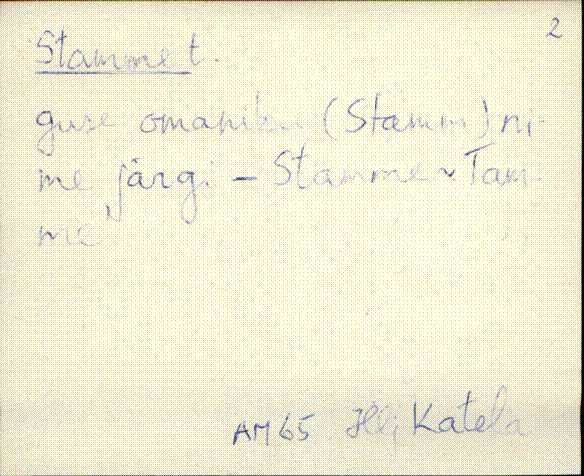 2
Stamme t.
guse omaniku (Stamm) ni-
me järgi – Stamme ~ Tam-
me
AM 65 Illi Katela